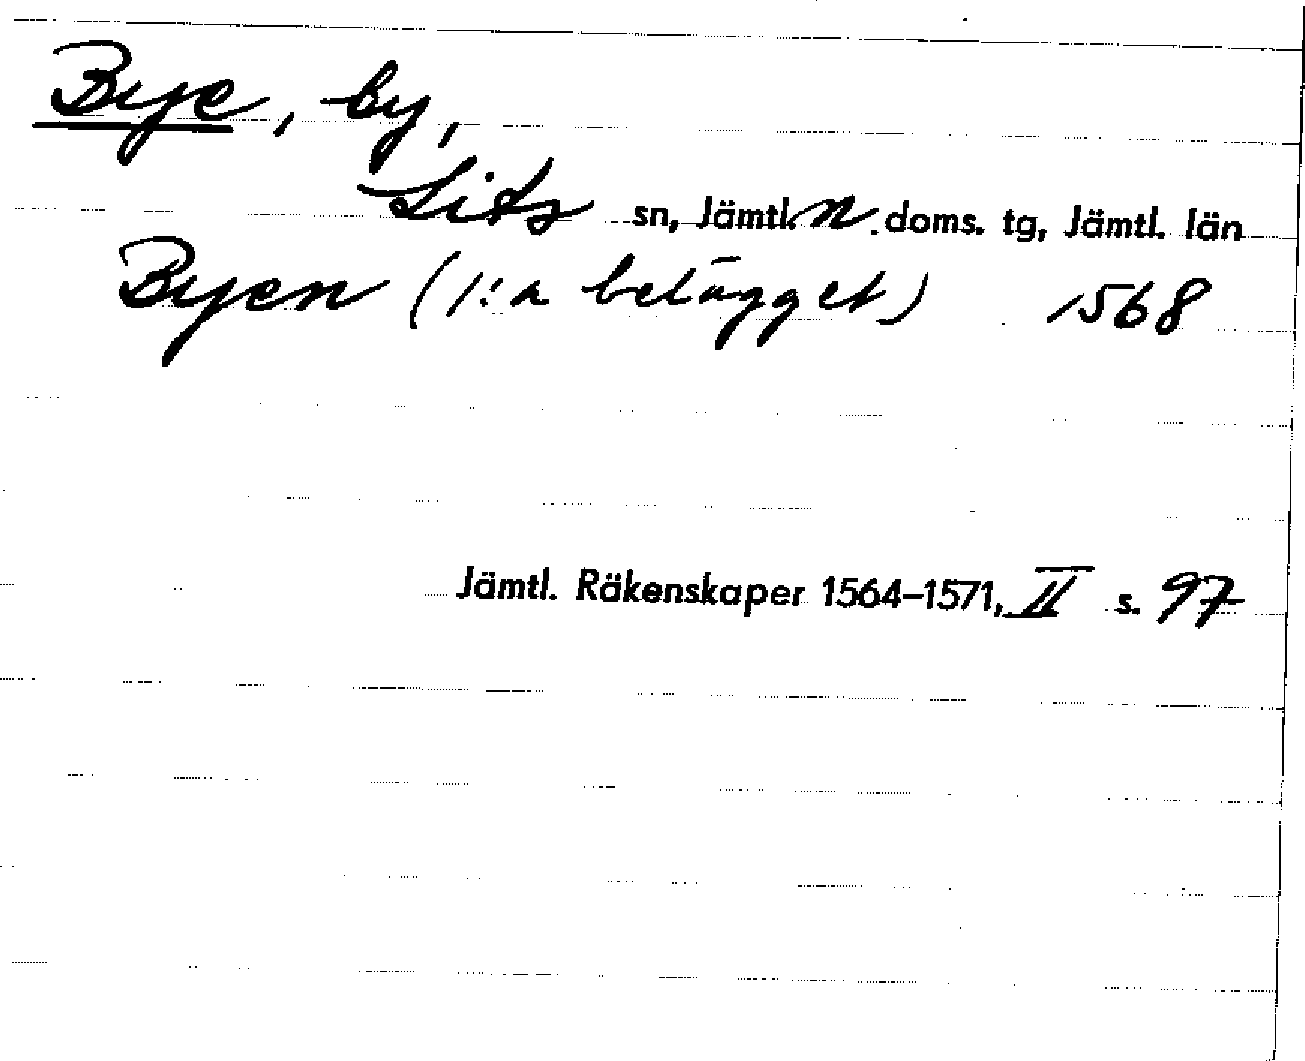 Bye, by,
Lits sn, Jämtl. n. doms. tg, Jämtl. län
Byen (1:a belägget) 1568
Jämtl. Räkenskaper 1564–1571, II s. 97